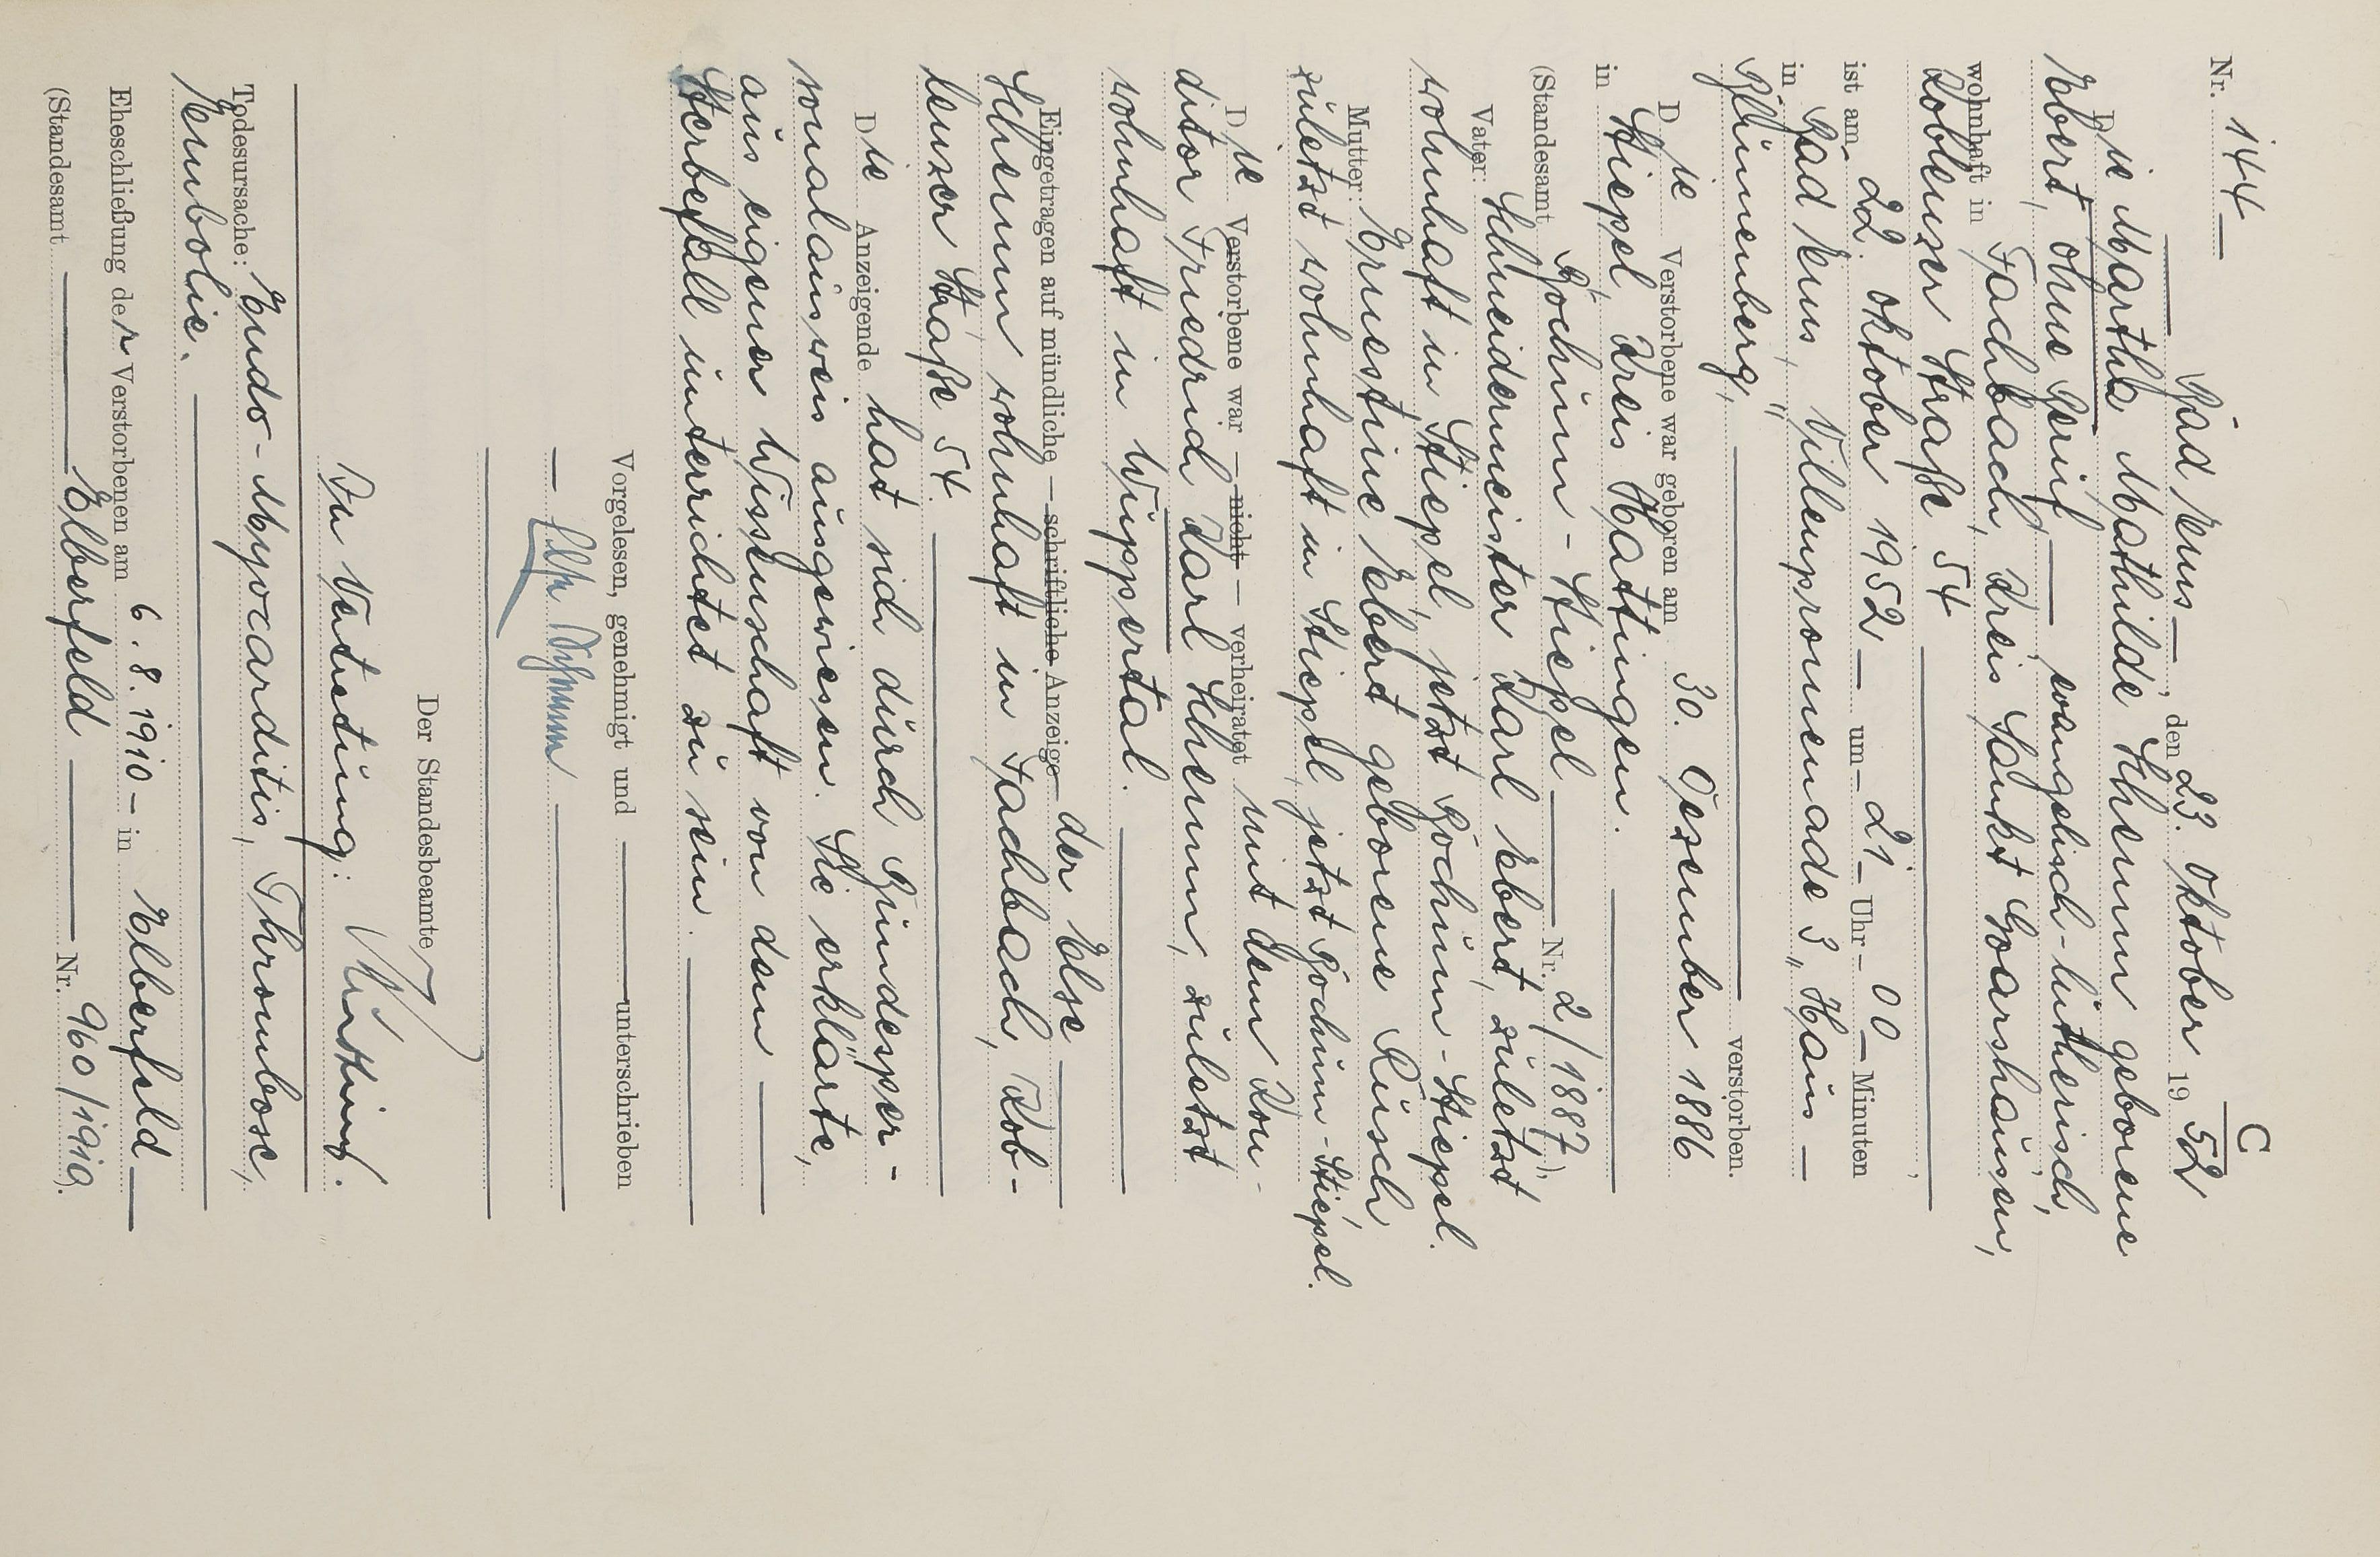 C
Nr. 144
Bad Ems, den 23. Oktober 1952
Die Martha Mathilde Schemm geborene
Ebert, ohne Beruf — evangelisch-lutherisch,
wohnhaft in Fachbach, Kreis Sankt Goarshausen,
Koblenzer Straße 54
ist am 22. Oktober 1952 um 21 Uhr 00 Minuten
in Bad Ems, Villenpromenade 3 „Haus
Blumenberg" verstorben.
Die Verstorbene war geboren am 30. Dezember 1886
in Stiepel, Kreis Hattingen.
(Standesamt Bochum-Stiepel Nr. 2/1887),
Vater: Schneidermeister Karl Ebert, zuletzt
wohnhaft in Stiepel, jetzt Bochum-Stiepel.
Mutter: Ernestine Ebert geborene Rüsch
zuletzt wohnhaft in Stiepel, jetzt Bochum-Stiepel.
Die Verstorbene war — nicht — verheiratet mit dem Kon-
ditor Friedrich Karl Schemm, zuletzt
wohnhaft in Wuppertal.
Eingetragen auf mündliche — schriftliche Anzeige der Else
Schemm wohnhaft in Fachbach, Kob-
lenzer Straße 54.
Die Anzeigende hat sich durch Bundesper-
sonalausweis ausgewiesen. Sie erklärte,
aus eigener Wissenschaft von dem
Sterbefall unterrichtet zu sein.
Vorgelesen, genehmigt und unterschrieben
Else Schemm
Der Standesbeamte
In Vertretung:
Todesursache: Endo-Myocarditis, Thrombose,
Embolie.
Eheschließung der Verstorbenen am 6.8.1910 in Elberfeld
(Standesamt Elberfeld Nr. 960/1910).